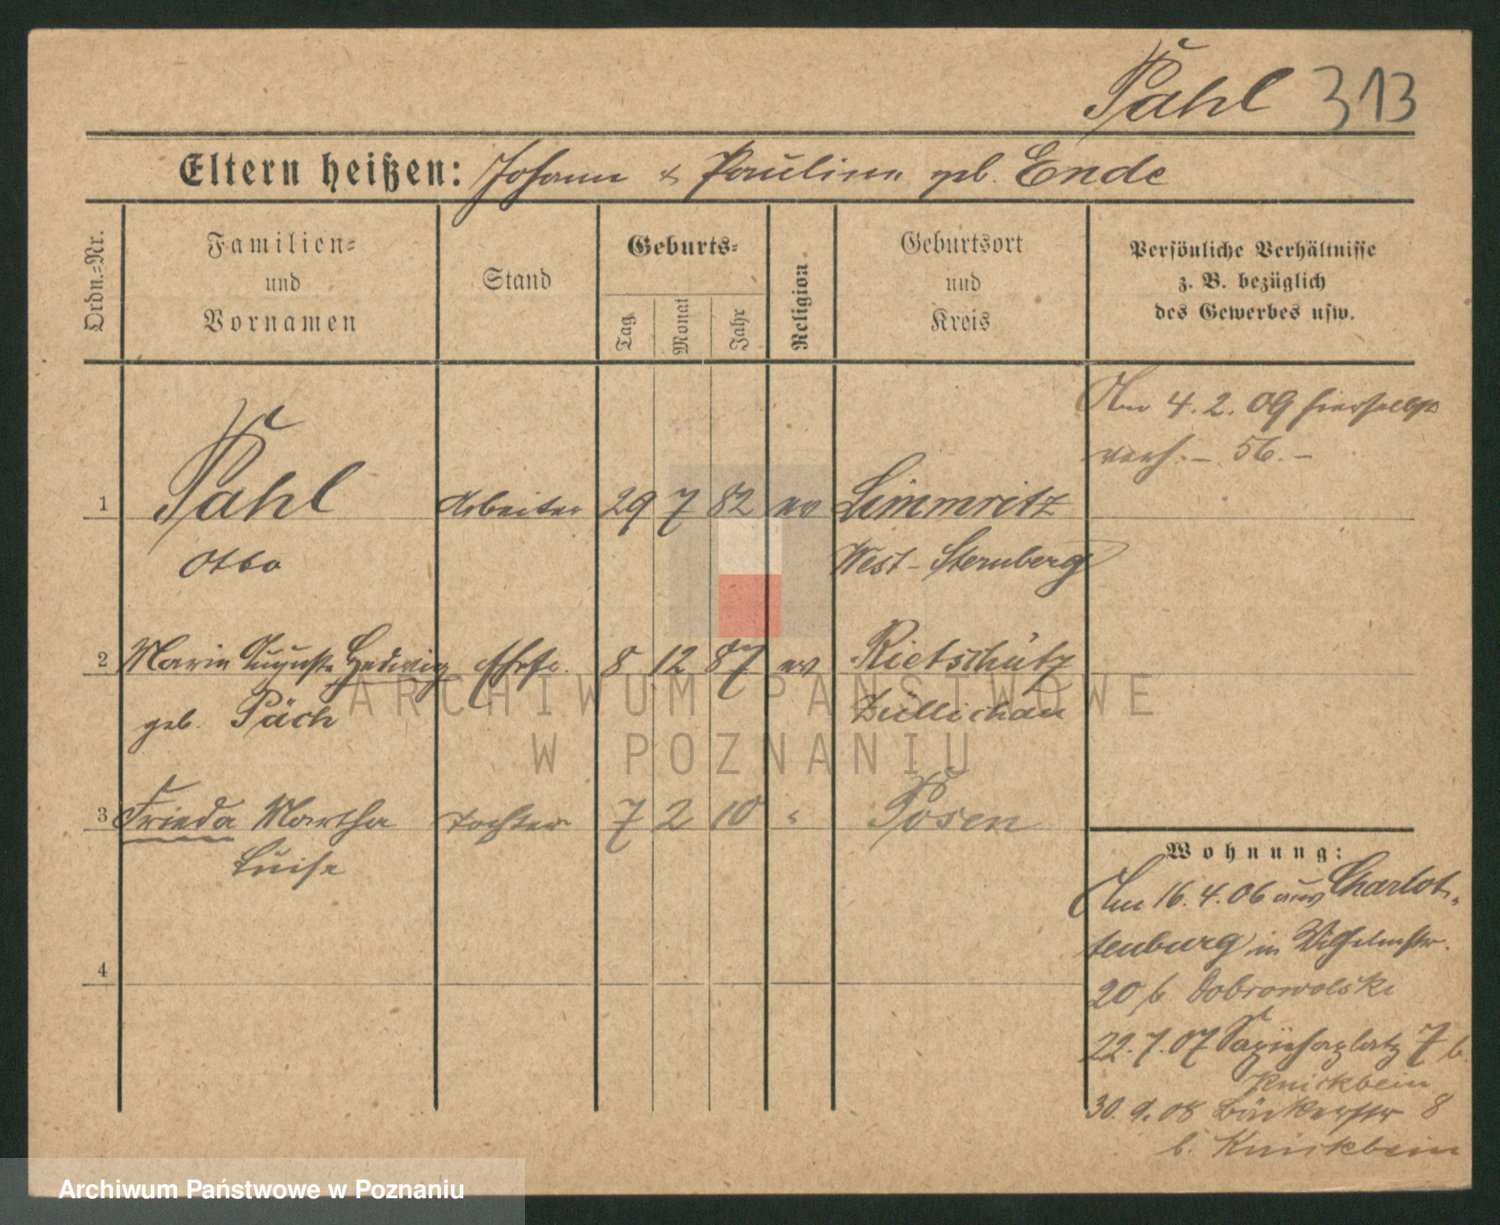 Pahl 313
Eltern heißen: Johann & Pauline geb. Ende
Ordn.-Nr.
Familien-
und
Vornamen
Stand
Geburts-
Tag
Monat
Jahr
Religion
Geburtsort
und
Kreis
Persönliche Verhältnisse
z. B. bezüglich
des Gewerbes usw.
Am 4. 2. 09 hierselbst
verh. – 56. –
1 Pahl Arbeiter 29 7 82 ev Limmritz
Otto West-Sternberg
2 Marie Auguste Hedwig Ehefr. 8 12 87 ev Rietschütz
geb. Päch Züllichau
3 Frieda Martha Tochter 7 2 10 " Posen
Luise
4
Wohnung:
Am 16. 4. 06 aus Charlot-
tenburg in Wilhelmstr.
20 b. Dobrowolski
22. 7. 07 Sapiehaplatz 7 b.
Knickbein
30. 9. 08 Bäckerstr 8
b. Knickbein
ARCHIWUM PAŃSTWOWE
W POZNANIU
Archiwum Państwowe w Poznaniu